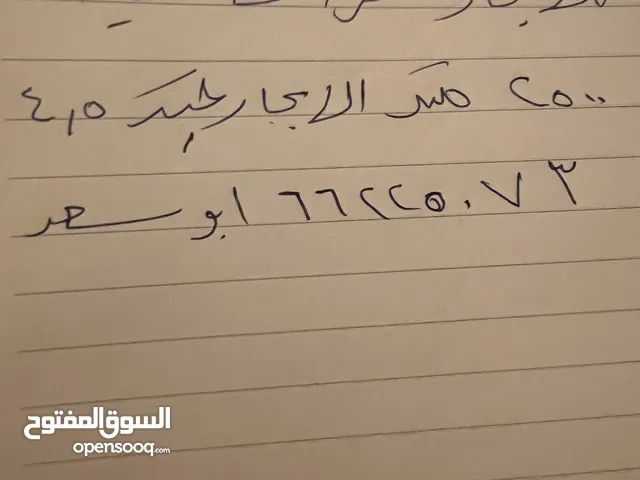 ٢٥٠٠ متر الايجار لكل متر ٤,٥
٦٦٢٢٥٠٧٣ ابو سعد
السوق المفتوح
opensooq.com